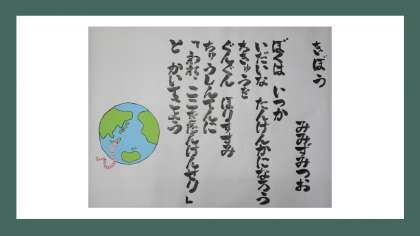 きぼう
みみずみつお
ぼくは いつか
いだいな たんけんかになろう
ちきゅうを
ぐんぐん ほりすすみ
ちゅうしんてんに
「われ、ここをたんけんせり」
と かいてきよう